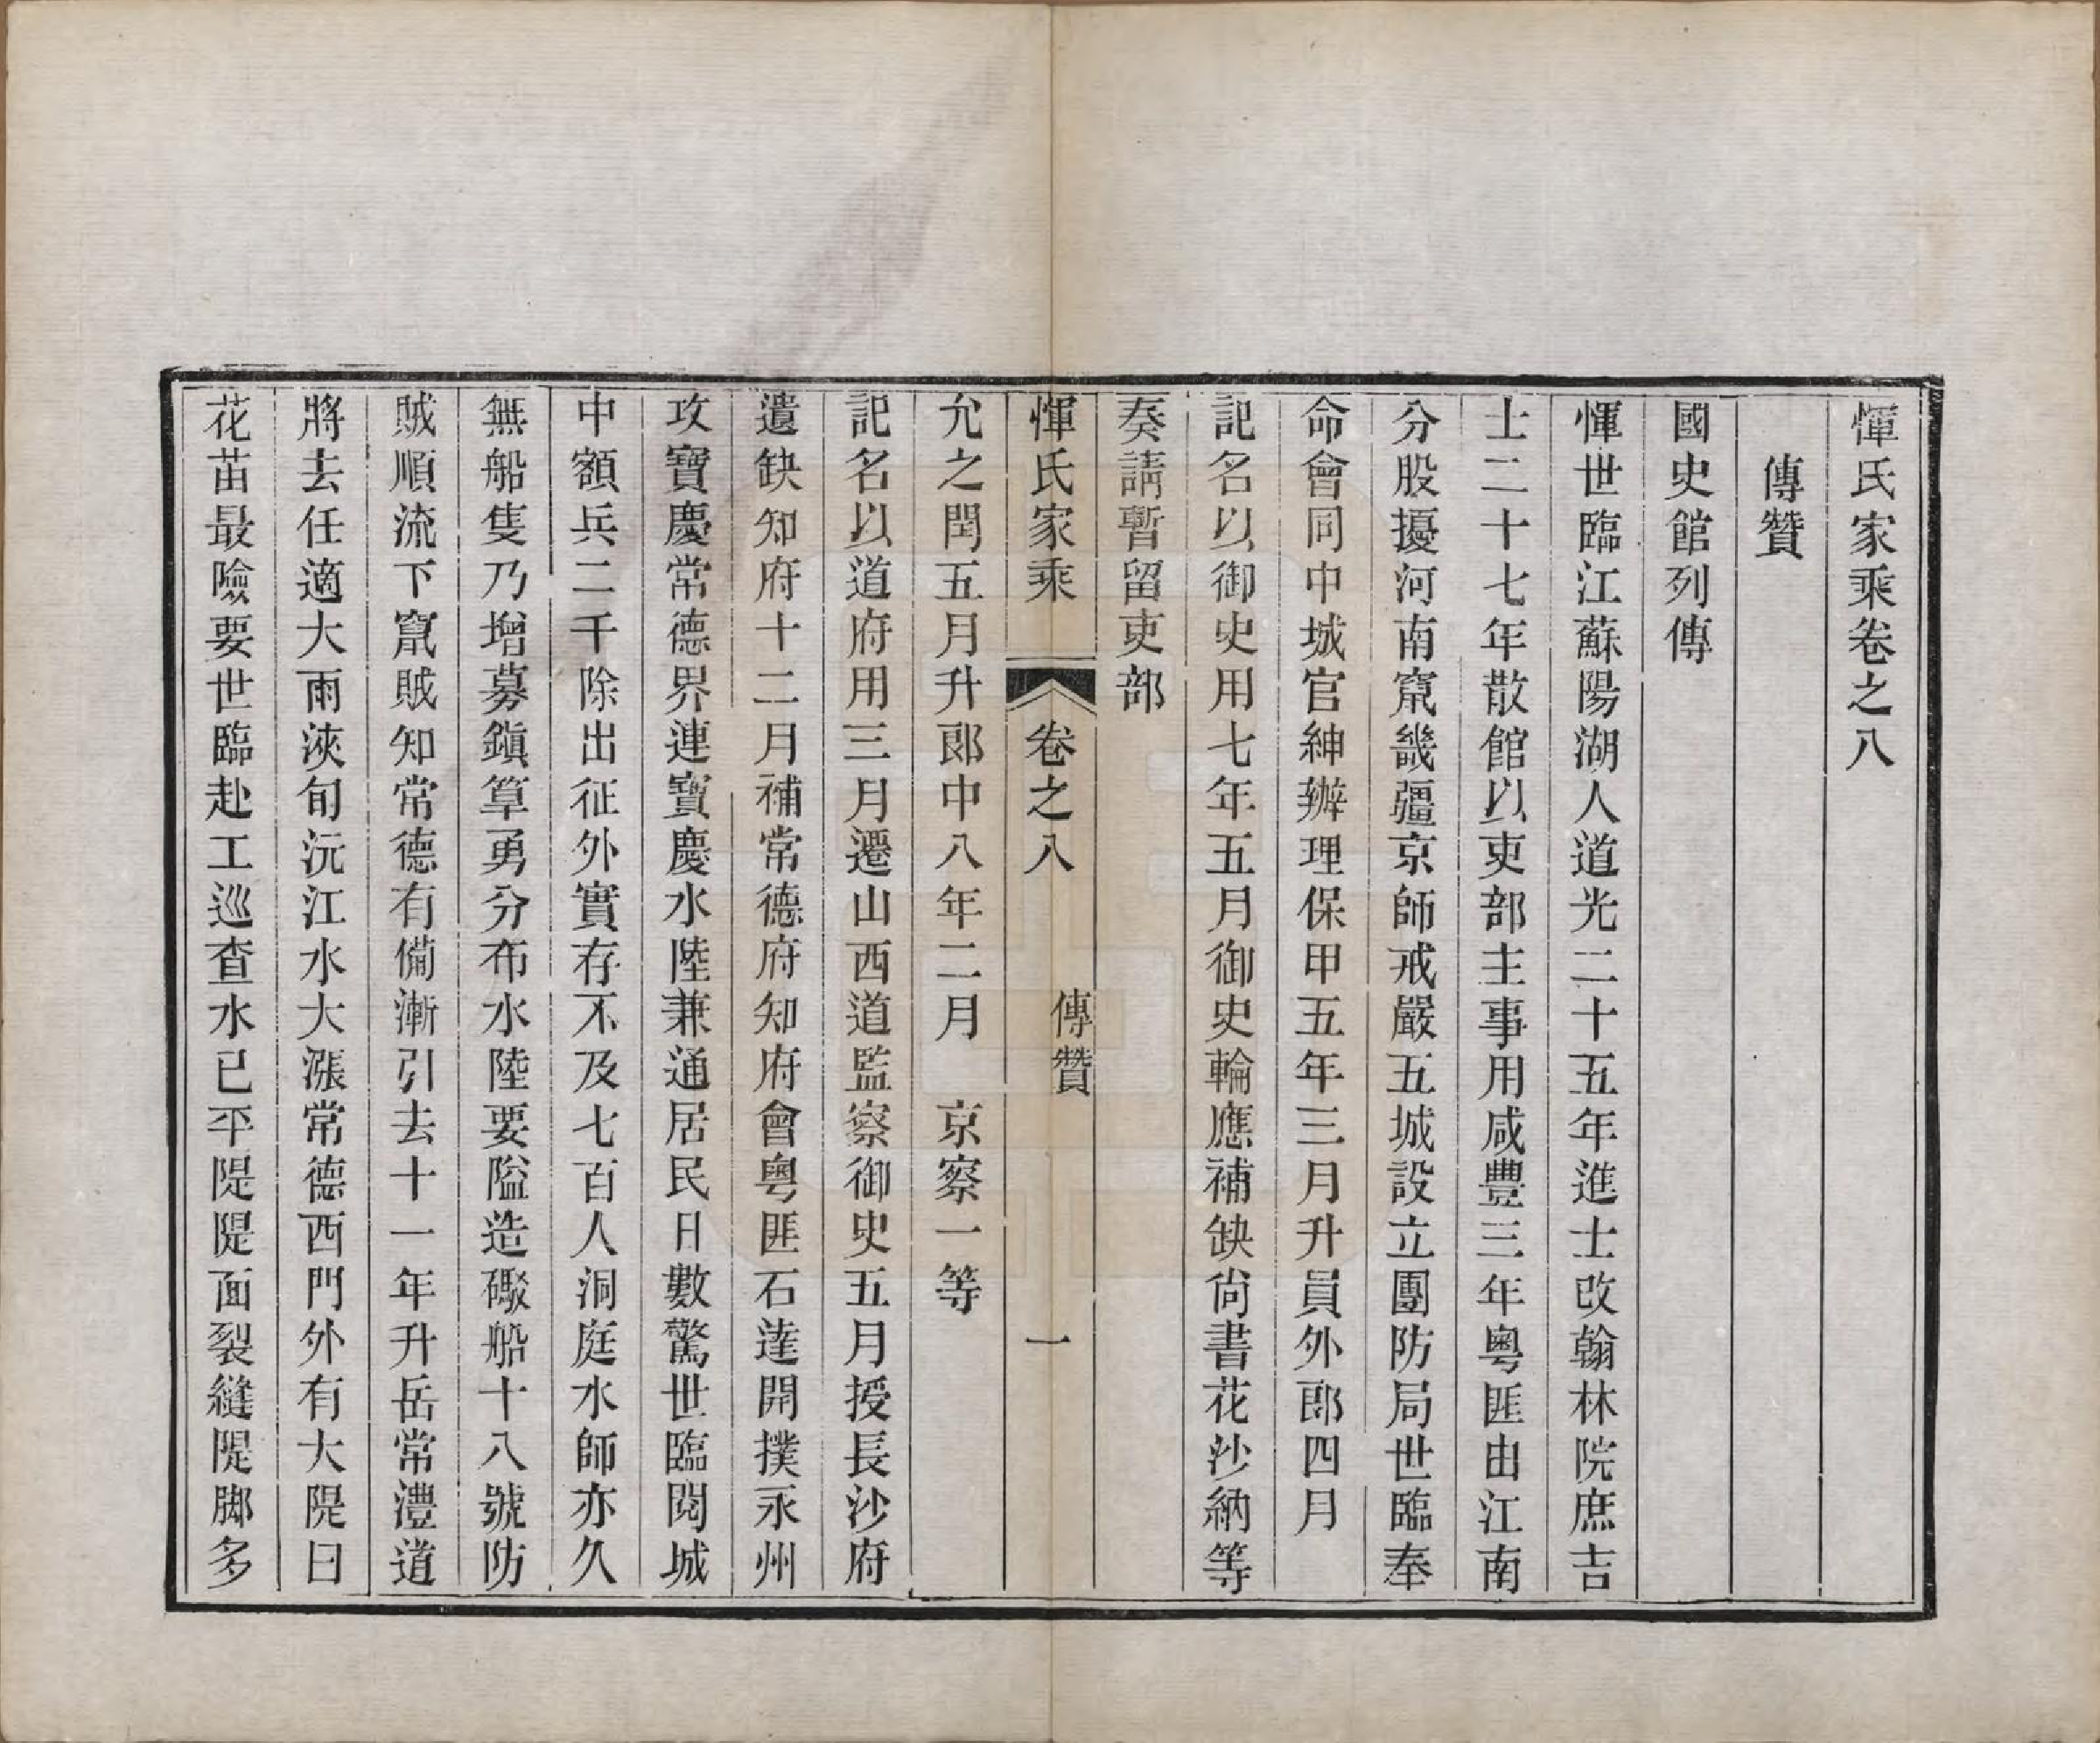 惲氏家乘卷之八
傳贊
國史館列傳
惲世臨江蘇陽湖人道光二十五年進士改翰林院庶吉
士二十七年散館以吏部主事用咸豐三年粵匪由江南
分股擾河南竄畿疆京師戒嚴五城設立團防局世臨奉
命會同中城官紳辦理保甲五年三月升員外郎四月
記名以御史用七年五月御史輪應補缺尙書花沙納等
奏請暫留吏部
惲氏家乘 卷之八 傳贊 一
允之閏五月升郎中八年二月 京察一等
記名以道府用三月遷山西道監察御史五月授長沙府
遺缺知府十二月補常德府知府會粵匪石達開撲永州
攻寶慶常德界連寶慶水陸兼通居民日數驚世臨閱城
中額兵二千除出征外實存不及七百人洞庭水師亦久
無船隻乃增募鎭筸勇分布水陸要隘造礮船十八號防
賊順流下竄賊知常德有備漸引去十一年升岳常澧道
將去任適大雨浹旬沅江水大漲常德西門外有大隄曰
花苗最險要世臨赴工巡查水已平隄隄面裂縫隄脚多